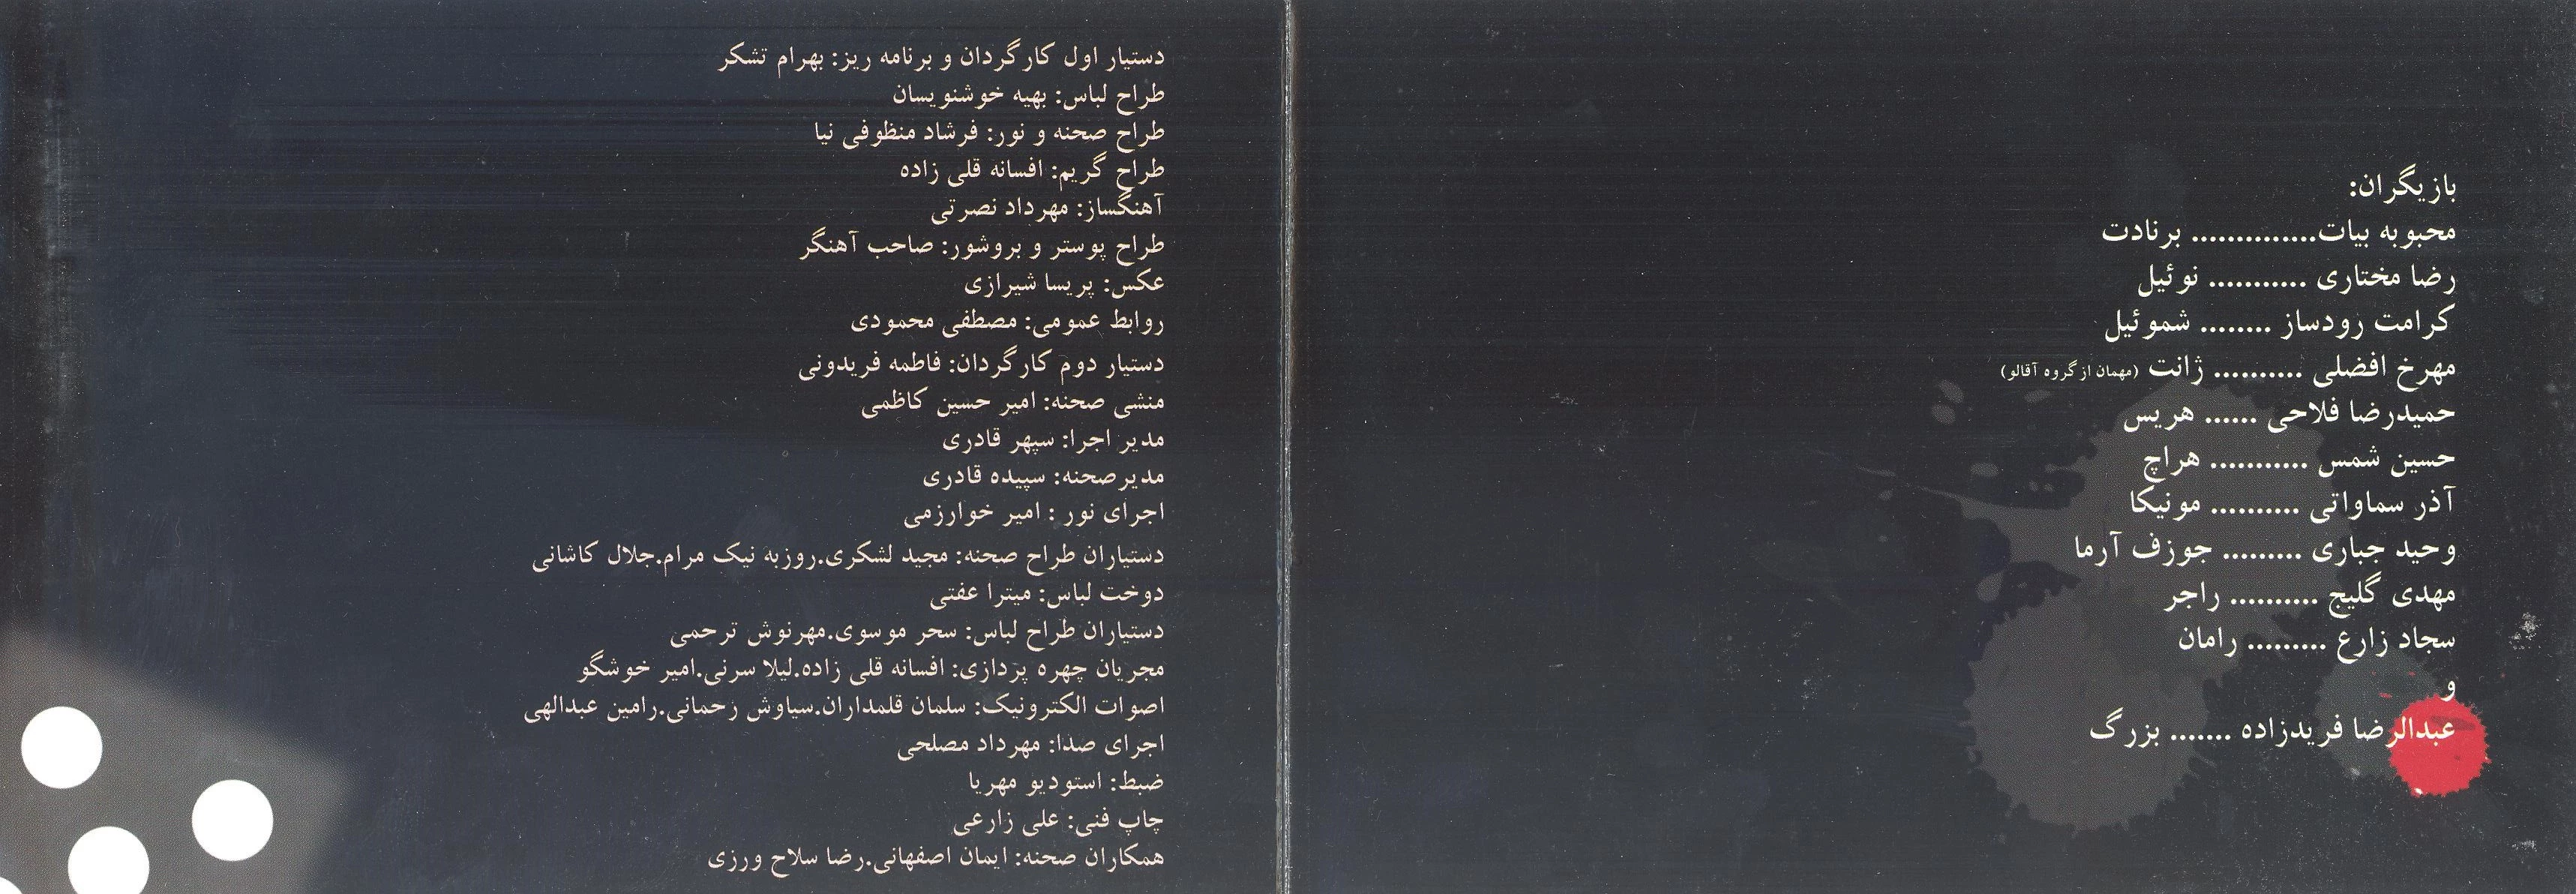 بازیگران:
محبوبه بیات.............. برنادت
رضا مختاری ........... نوئیل
کرامت رودساز ........ شموئیل
مهرخ افضلی .......... ژانت (مهمان از گروه آقالو)
حمیدرضا فلاحی ...... هریس
حسین شمس ........... هراچ
آذر سماواتی .......... مونیکا
وحید جباری ......... جوزف آرما
مهدی گلیج .......... راجر
سجاد زارع ......... رامان
و
عبدالرضا فریدزاده ....... بزرگ
دستیار اول کارگردان و برنامه ریز: بهرام تشکر
طراح لباس: بهیه خوشنویسان
طراح صحنه و نور: فرشاد منظوفی نیا
طراح گریم: افسانه قلی زاده
آهنگساز: مهرداد نصرتی
طراح پوستر و بروشور: صاحب آهنگر
عکس: پریسا شیرازی
روابط عمومی: مصطفی محمودی
دستیار دوم کارگردان: فاطمه فریدونی
منشی صحنه: امیر حسین کاظمی
مدیر اجرا: سپهر قادری
مدیرصحنه: سپیده قادری
اجرای نور : امیر خوارزمی
دستیاران طراح صحنه: مجید لشکری.روزبه نیک مرام.جلال کاشانی
دوخت لباس: میترا عفتی
دستیاران طراح لباس: سحر موسوی.مهرنوش ترحمی
مجریان چهره پردازی: افسانه قلی زاده.لیلا سرنی.امیر خوشگو
اصوات الکترونیک: سلمان قلمداران.سیاوش رحمانی.رامین عبدالهی
اجرای صدا: مهرداد مصلحی
ضبط: استودیو مهریا
چاپ فنی: علی زارعی
همکاران صحنه: ایمان اصفهانی.رضا سلاح ورزی